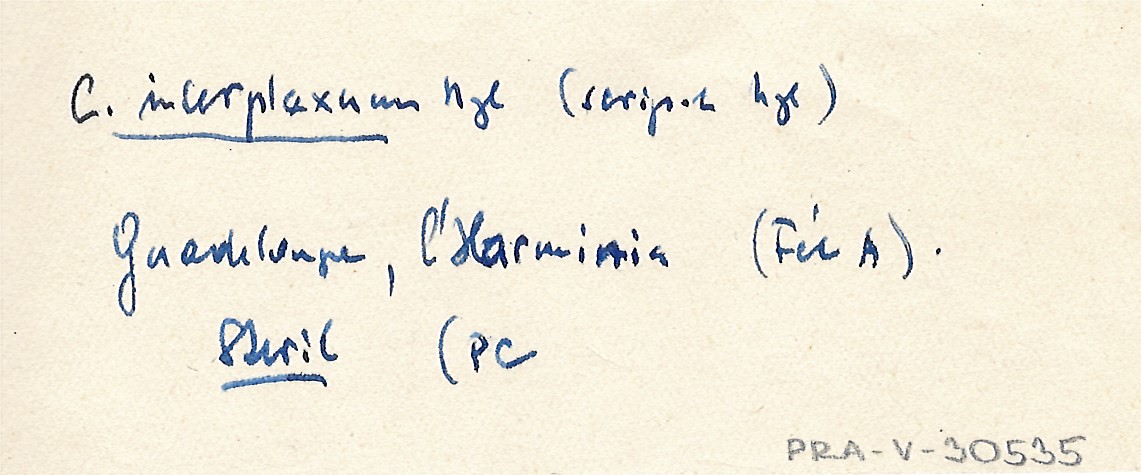 C. interplexum Nyl (scrips.t Nyl)
Guadeloupe, l'Harminia (Fée A).
Steril (PC
PRA-V-30535